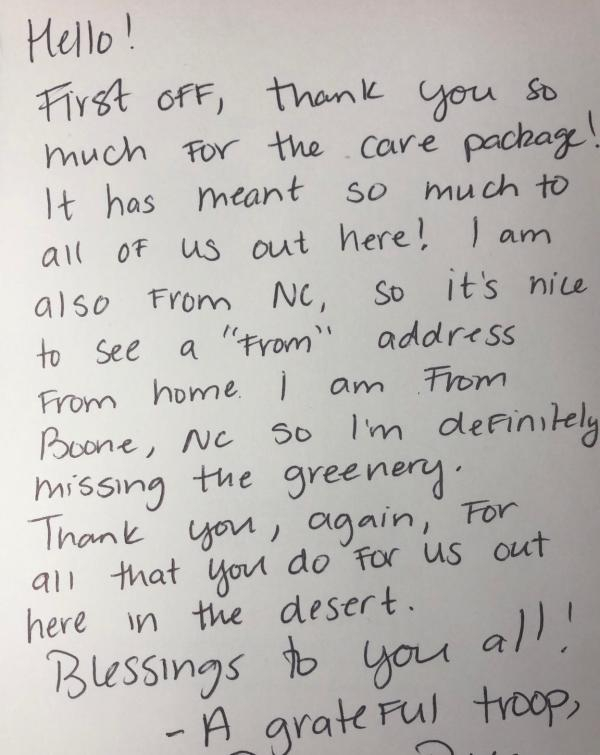 Hello!
First off, thank you so
much for the care package!
It has meant so much to
all of us out here! I am
also from NC, so it's nice
to see a "from" address
from home. I am from
Boone, NC so I'm definitely
missing the greenery.
Thank you, again, for
all that you do for us out
here in the desert.
Blessings to you all!
- A grateful troop,